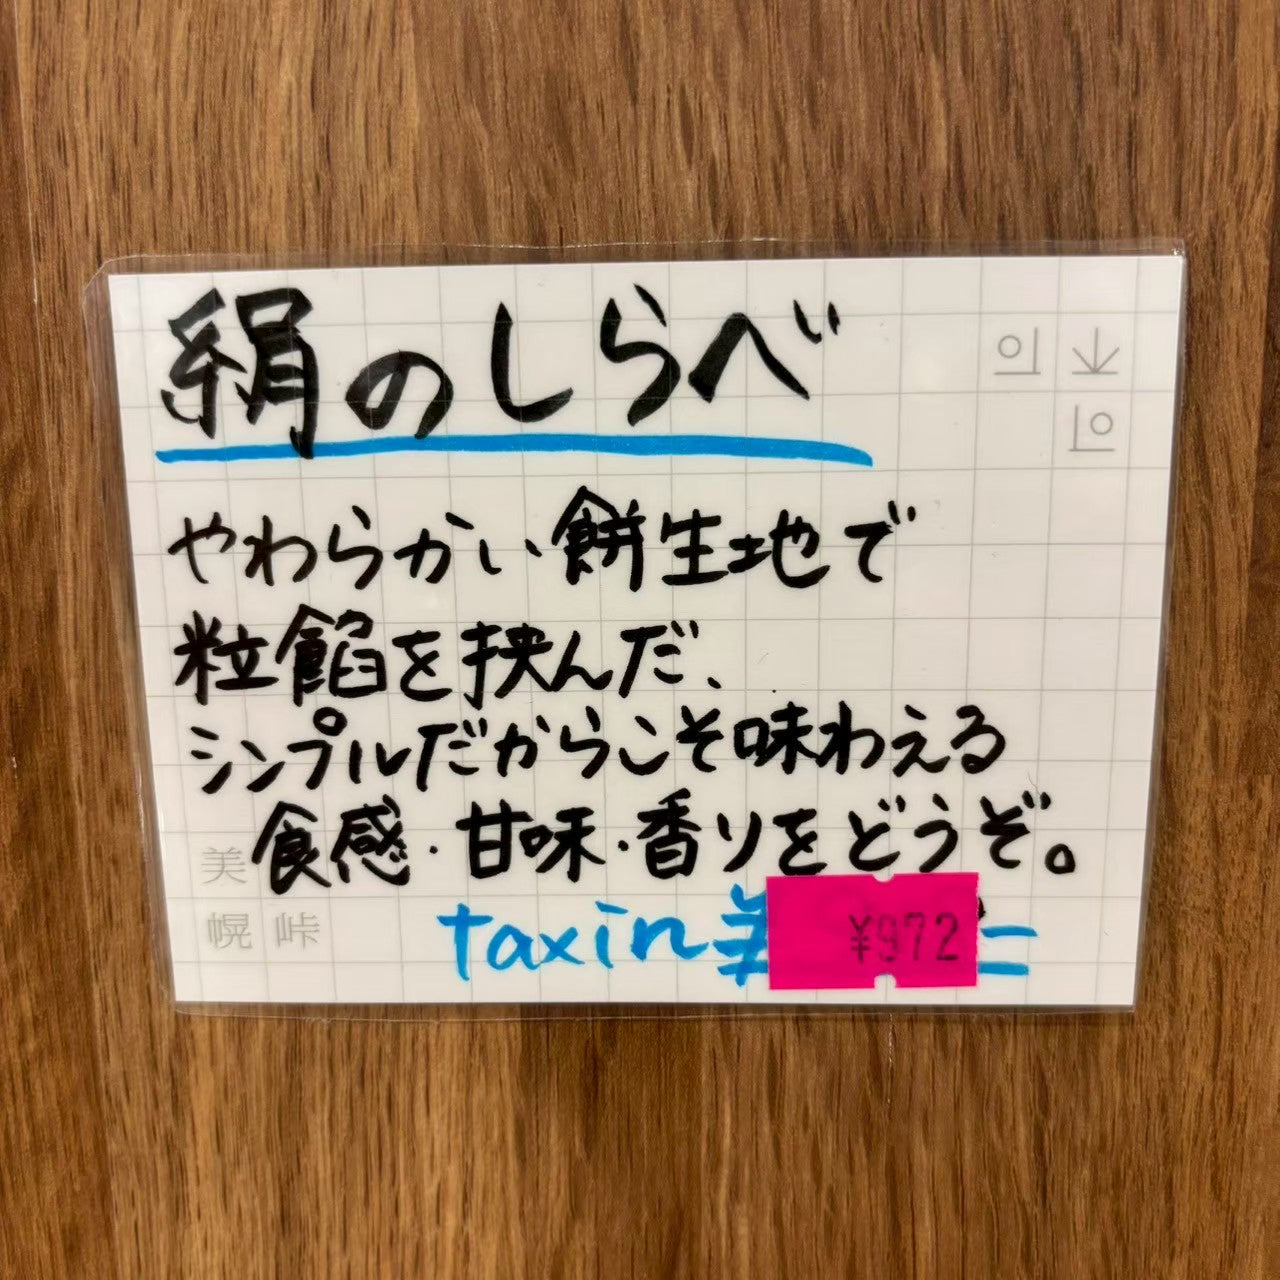 絹のしらべ
やわらかい餅生地で
粒餡を挟んだ、
シンプルだからこそ味わえる
食感・甘味・香りをどうぞ。
taxin ¥972
美
幌峠